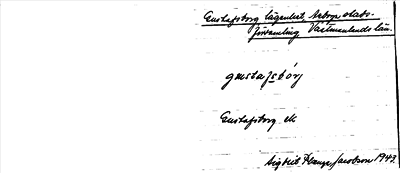 Gustafsborg lägenhet, Arboga stads-
församling Västmanlands län.
gustafsbórj
Gustafsborg ek
Sigbrit Plænge Jacobson 1943